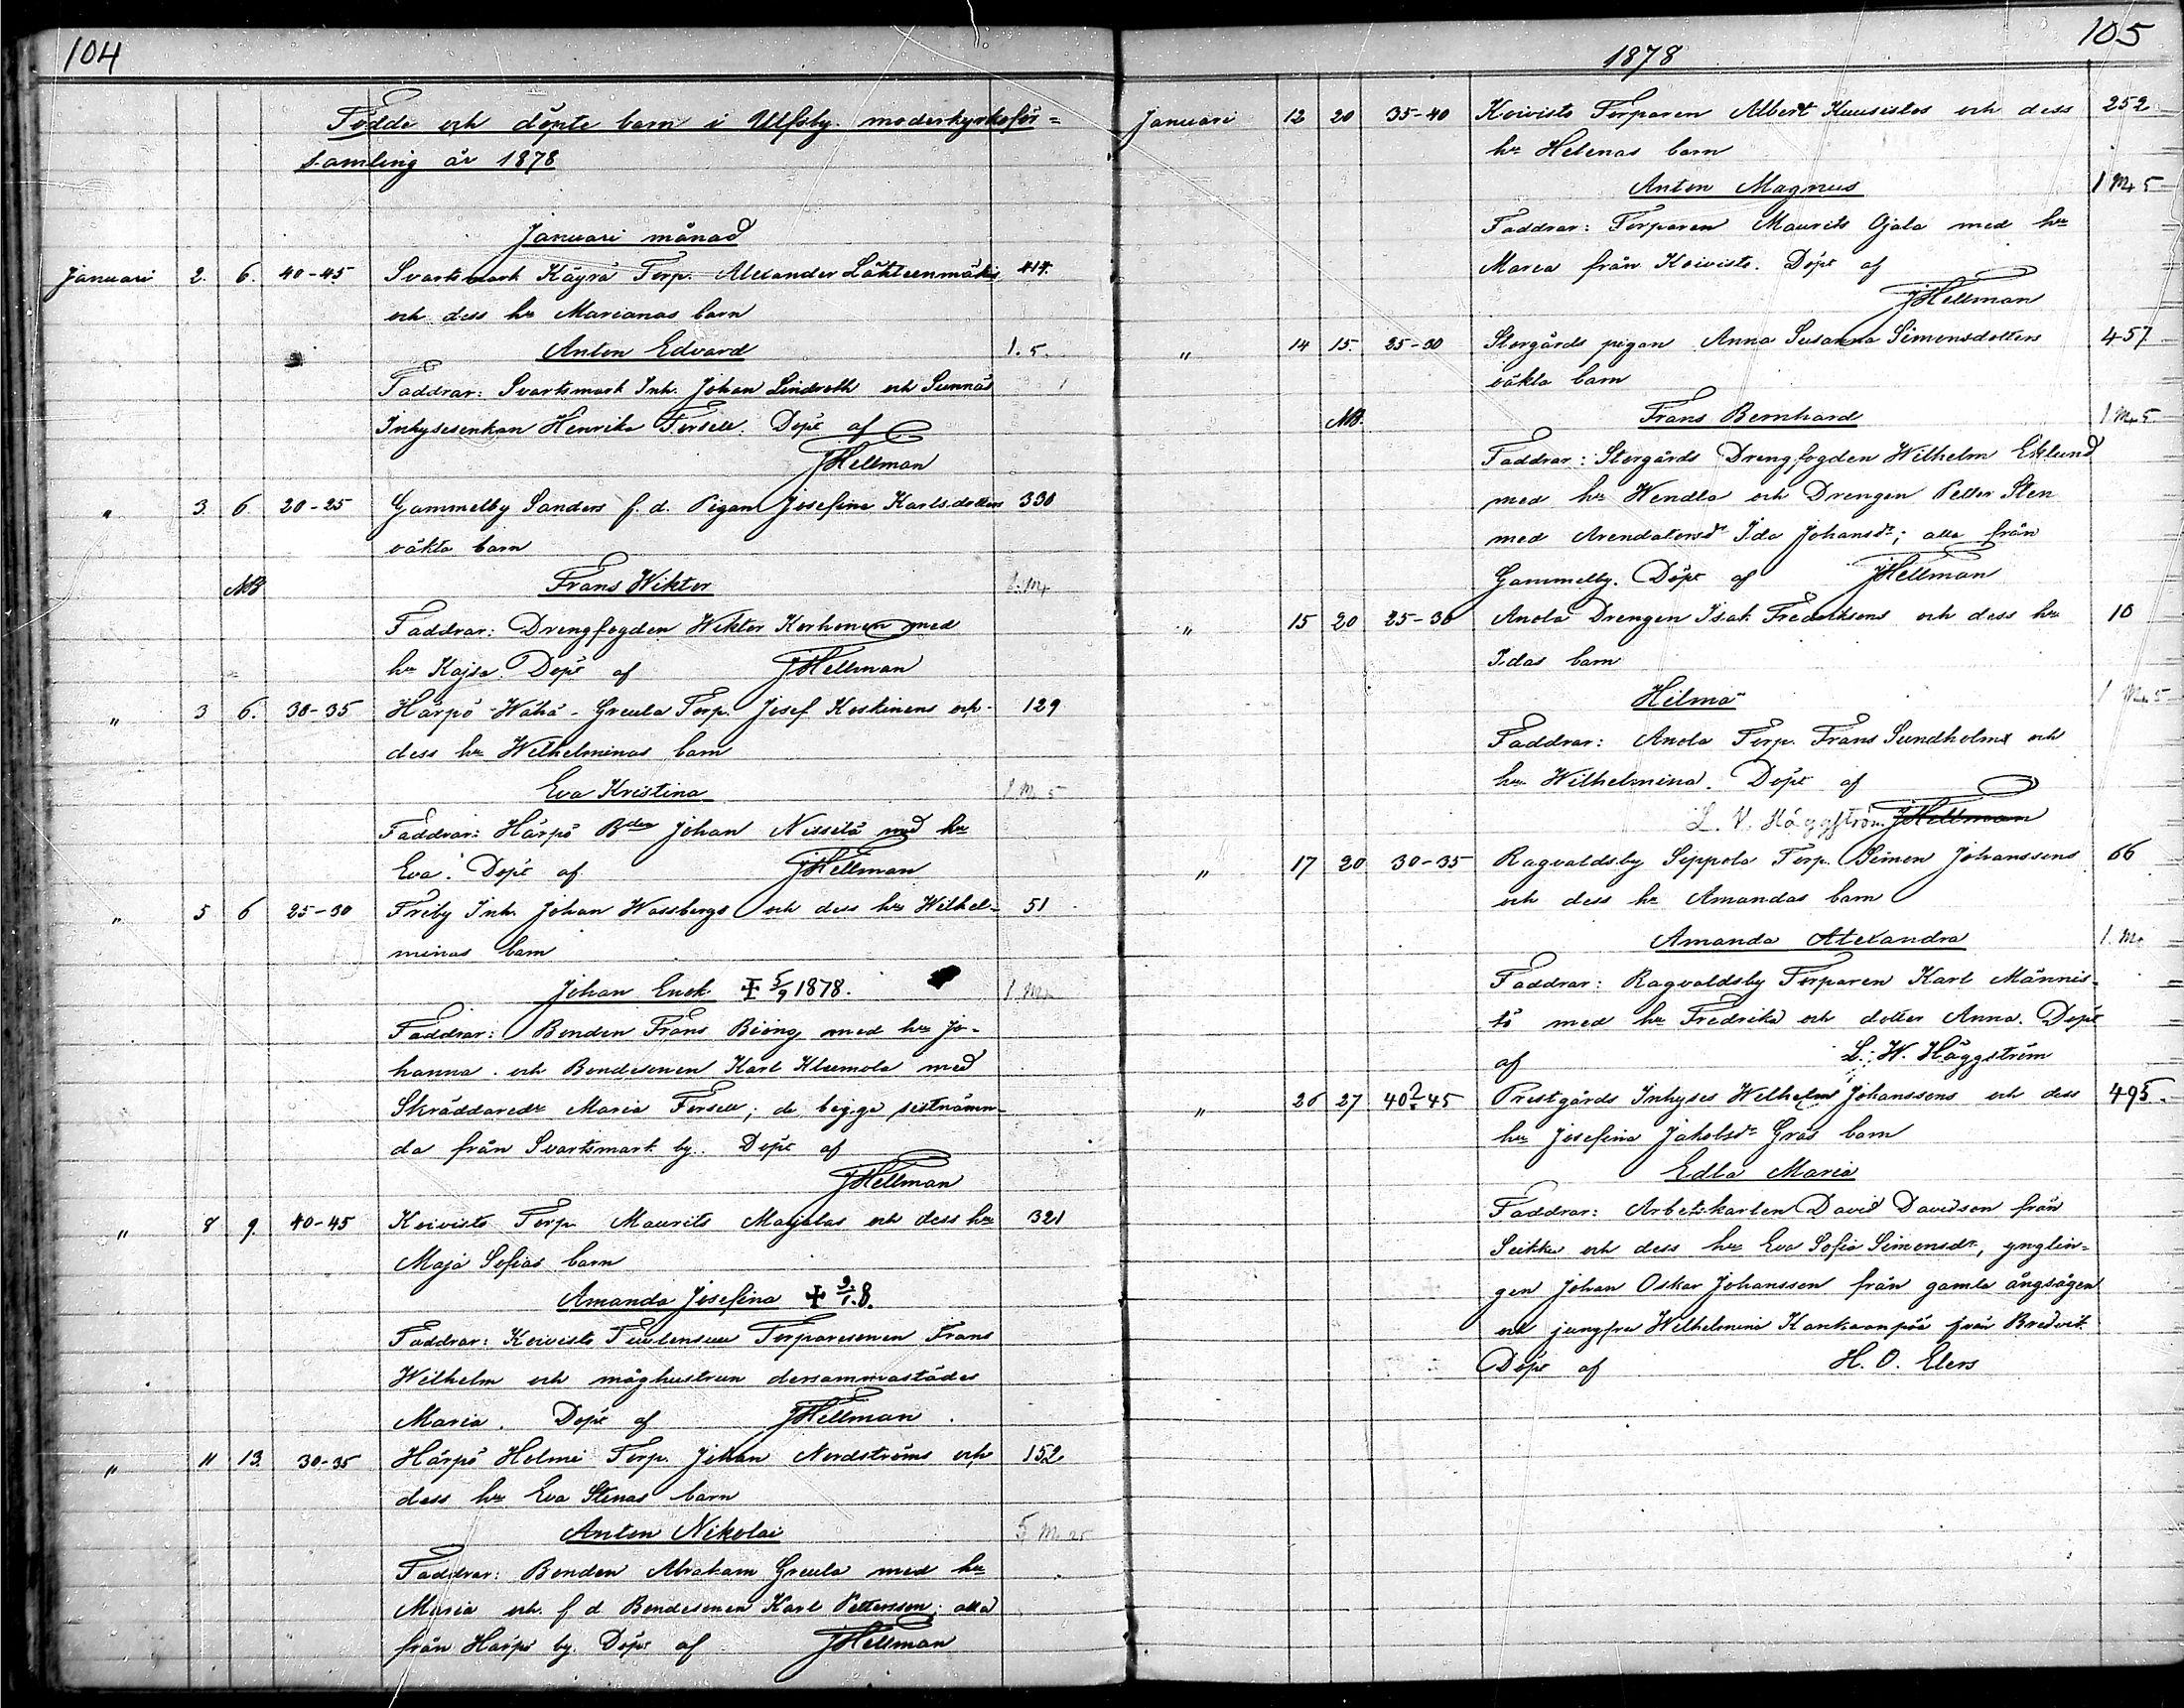 104
Födde och döpte barn i Ulfsby moderkyrkoför=
samling år 1878
Januari månad
Januari 2. 6. 40-45 Svartsmark Käyrä Torp. Alexander Lähteenmäkis 414.
och dess hu Marianas barn
Anton Edvard 1. 5.
Faddrar: Svartsmark Inh. Johan Lindroth och Sunnäs
Inhysesenkan Henrika Forsell. Döpt af
JHellman
" 3. 6. 20-25 Gammelby Sanders f. d. Pigan Josefina Karlsdotters 330
oäkta barn
NB Frans Wiktor 1. M.
Faddrar: Drengfogden Wiktor Korhonen med
hu Kajsa. Döpt af JHellman
" 3 6. 30-35 Härpö Wähä-Greula Torp. Josef Koskinens och 129
dess hu Wilhelminas barn
Eva Kristina 1 M 5
Faddrar: Härpö Bden Johan Nissilä med hu
Eva. Döpt af JHellman
" 5 6 25-30 Friby Inh. Johan Wassbergs och dess hu Wilhel- 51
minas barn
Johan Enok ✝ 5/9 1878. 1 M.
Faddrar: Bonden Frans Biöng med hu Jo-
hanna och Bondesonen Karl Kleemola med
Skräddaredr Maria Forsell; de begge sistnämn-
da från Svartsmark by. Döpt af
JHellman
" 8 9. 40-45 Koivisto Torp. Maurits Marjalas och dess hu 321
Maja Sofias barn
Amanda Josefina ✝ 8.
Faddrar: Koivisto Torparesonen Frans
Wilhelm och måghustrun dersammastädes
Maria. Döpt af JHellman.
" 11 13. 30-35 Härpö Holmi Torp. Johan Nordströms och 152
dess hu Eva Stinas barn
Anton Nikolai 5 M 25
Faddrar: Bonden Abraham Greula med hu
Maria och f d Bondesonen Karl Pettersson; alla
från Härpö by. Döpt af JHellman
1878 105
Januari 12 20 35-40 Koivisto Torparen Albert Kuusistos och dess 252
hu Helenas barn
Anton Magnus 1 M 5
Faddrar: Torparen Maurits Ojala med hu
Maria från Koivisto. Döpt af
JHellman
" 14 15. 25-30 Storgårds pigan Anna Susanna Simonsdotters 457
oäkta barn
NB. Frans Bernhard 1 M 5
Faddrar: Storgårds Drengfogden Wilhelm Eklund
med hu Wendla och Drengen Petter Sten
med Arendatorsdr Ida Johansdr; alla från
Gammelby. Döpt af JHellman
" 15 20 25-30 Anola Drengen Isak Fredriksons och dess hu 10
Idas barn
Hilma 1 M 5
Faddrar: Anola Torp. Frans Sundholm och
hu Wilhelmina. Döpt af
L. V. Häggström JHellman
" 17 20 30-35 Ragvaldsby Seppola Torp. Simon Johanssons 66
och dess hu Amandas barn
Amanda Alexandra 1. M.
Faddrar: Ragvaldsby Torparen Karl Männis-
tö med hu Fredrika och dotter Anna. Döpt
af L. W. Häggström
" 26 27 40?45 Prestgårds Inhyses Wilhelms Johanssons och dess 495.
hu Josefina Jakobsdr Gräs barn
Edla Maria
Faddrar: Arbetskarlen David Davidson från
Seikku och dess hu Eva Sofia Simonsdr, ynglin-
gen Johan Oskar Johansson från gamla ångsågen
och jungfru Wilhelmina Kankaanpää från Bredvik.
Döpt af H. O. Elers